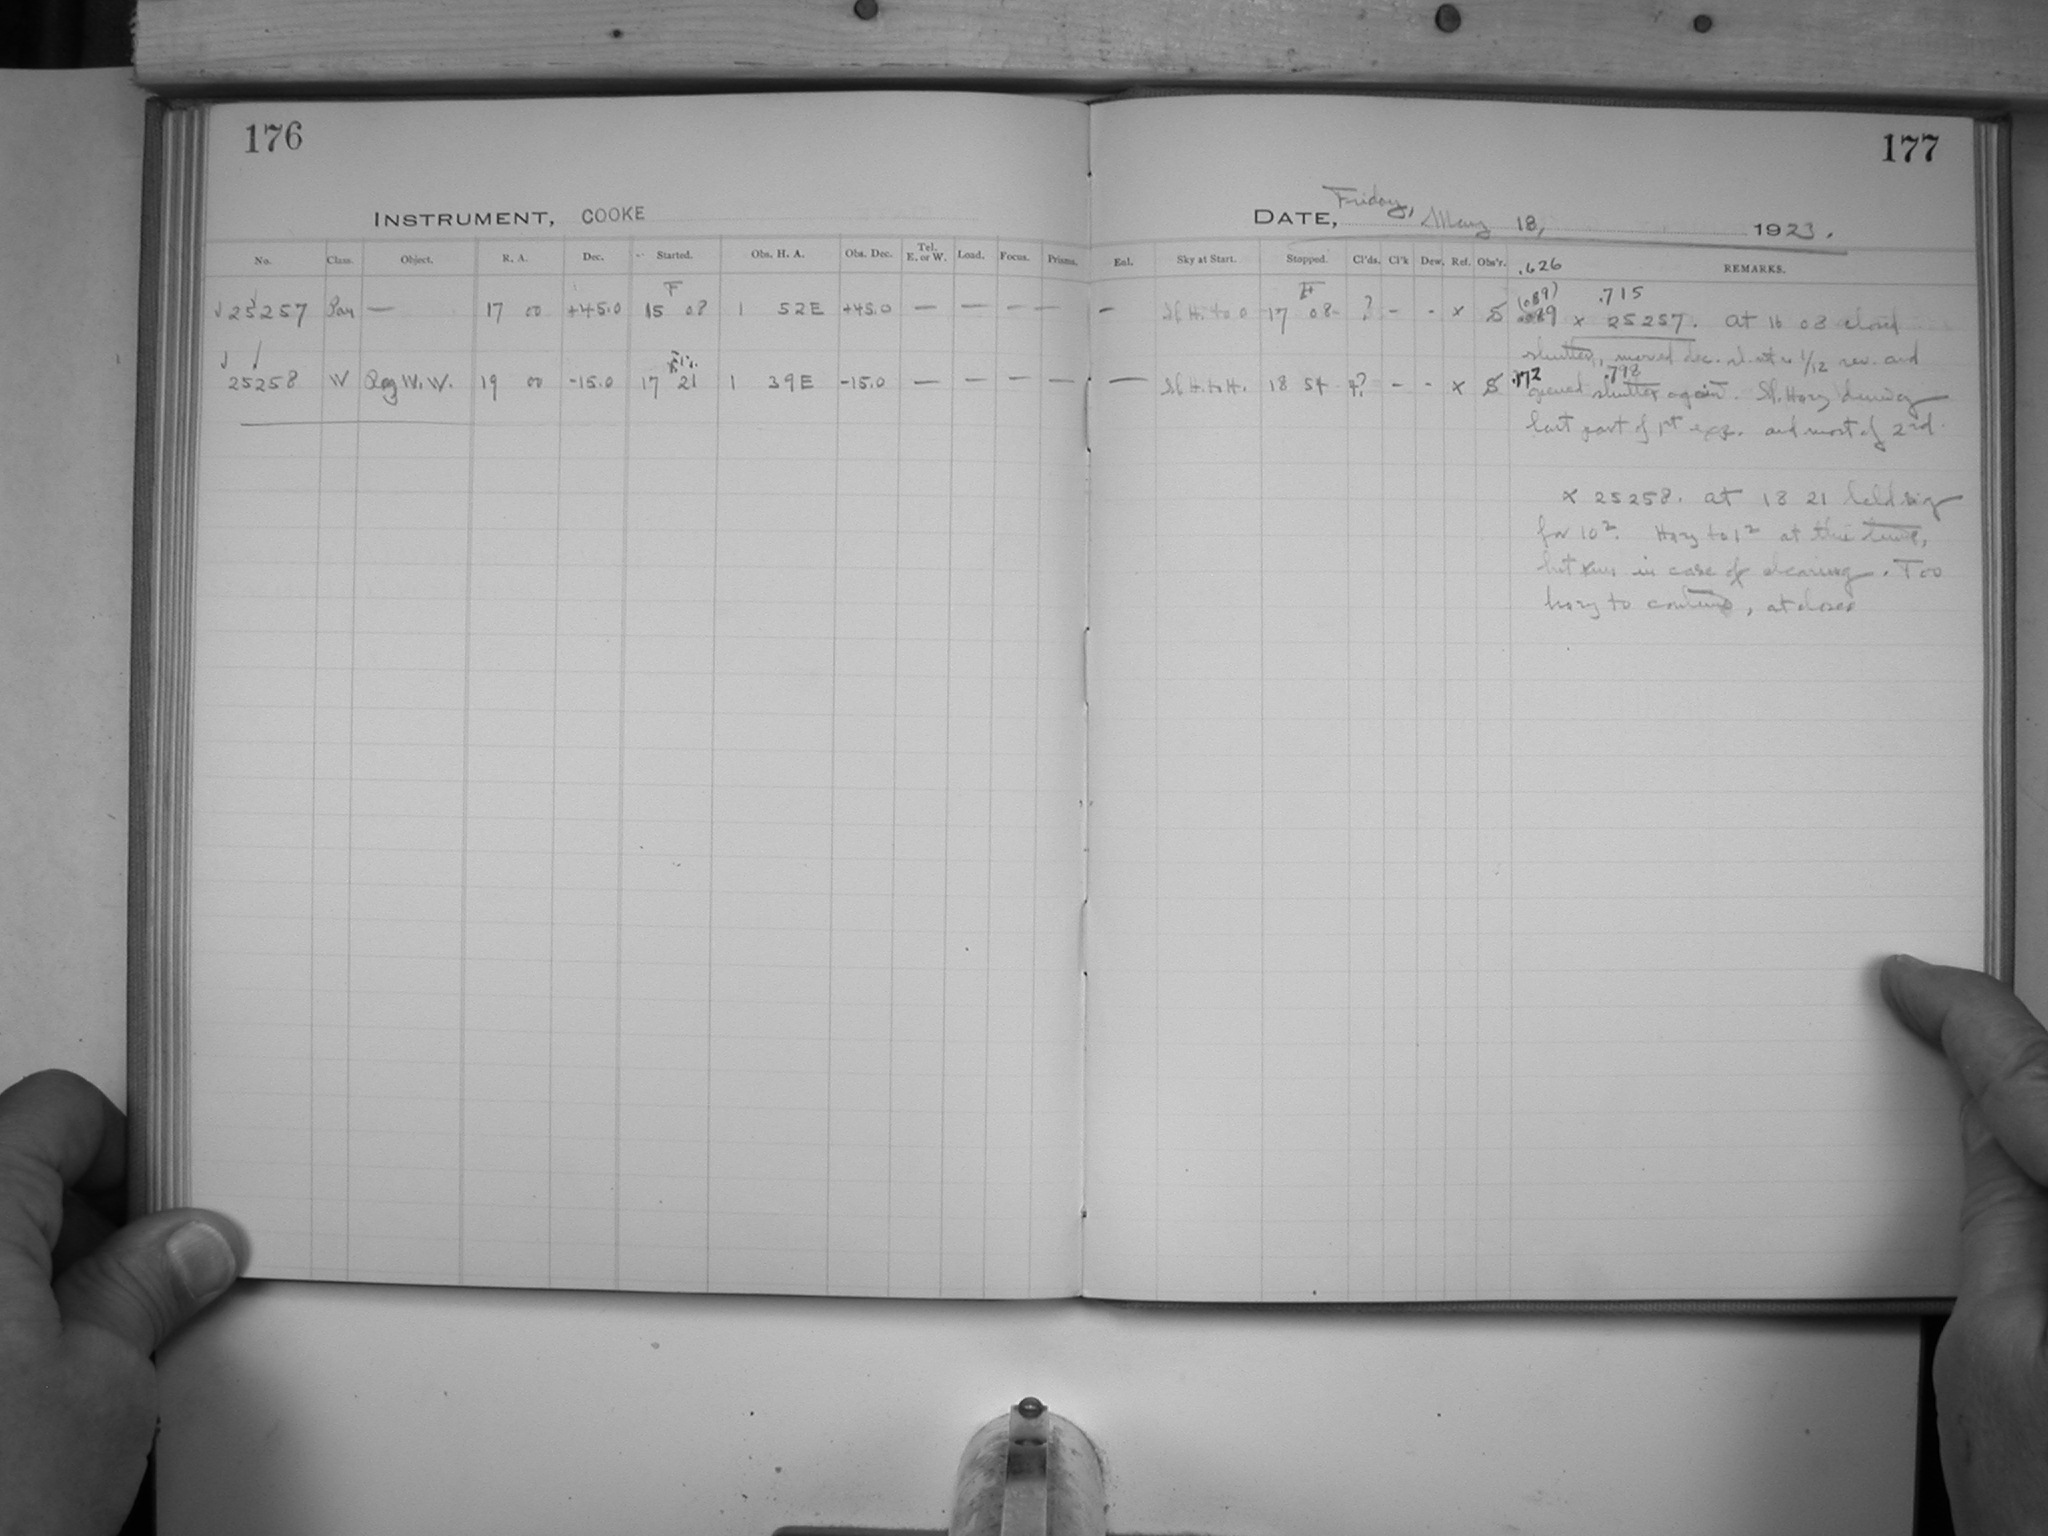 176
177
INSTRUMENT, COOKE
DATE, Friday, May 18, 1923.
No. Class. Object. R. A. Dec. Started. Obs. H. A. Obs. Dec. Tel. E. or W. Load. Focus. Prisms. Enl. Sky at Start. Stopped. Cl'ds. Cl'k Dew. Ref. Obs'r. .626 REMARKS.
F F (089) .715
25257 — 17 00 +45.0 15 08 1 52E +45.0 — — — — — Sl H. to 0 17 08 ? - - x S 089 x 25257. At 16 08 closed
shutter, moved dec. 1/12 rev. and
25258 W Reg W. W. 19 00 -15.0 17 21 1 39E -15.0 — — — — — Sl H. to H. 18 54 ? - - x S .172 .798
opened shutter again. Sl. Hazy during
last part of 1st exp. and most of 2nd.
x 25258. At 18 21 held sig
for 10². Hazy to 1² at this time,
but in case of clearing. Too
hazy to continue, at close